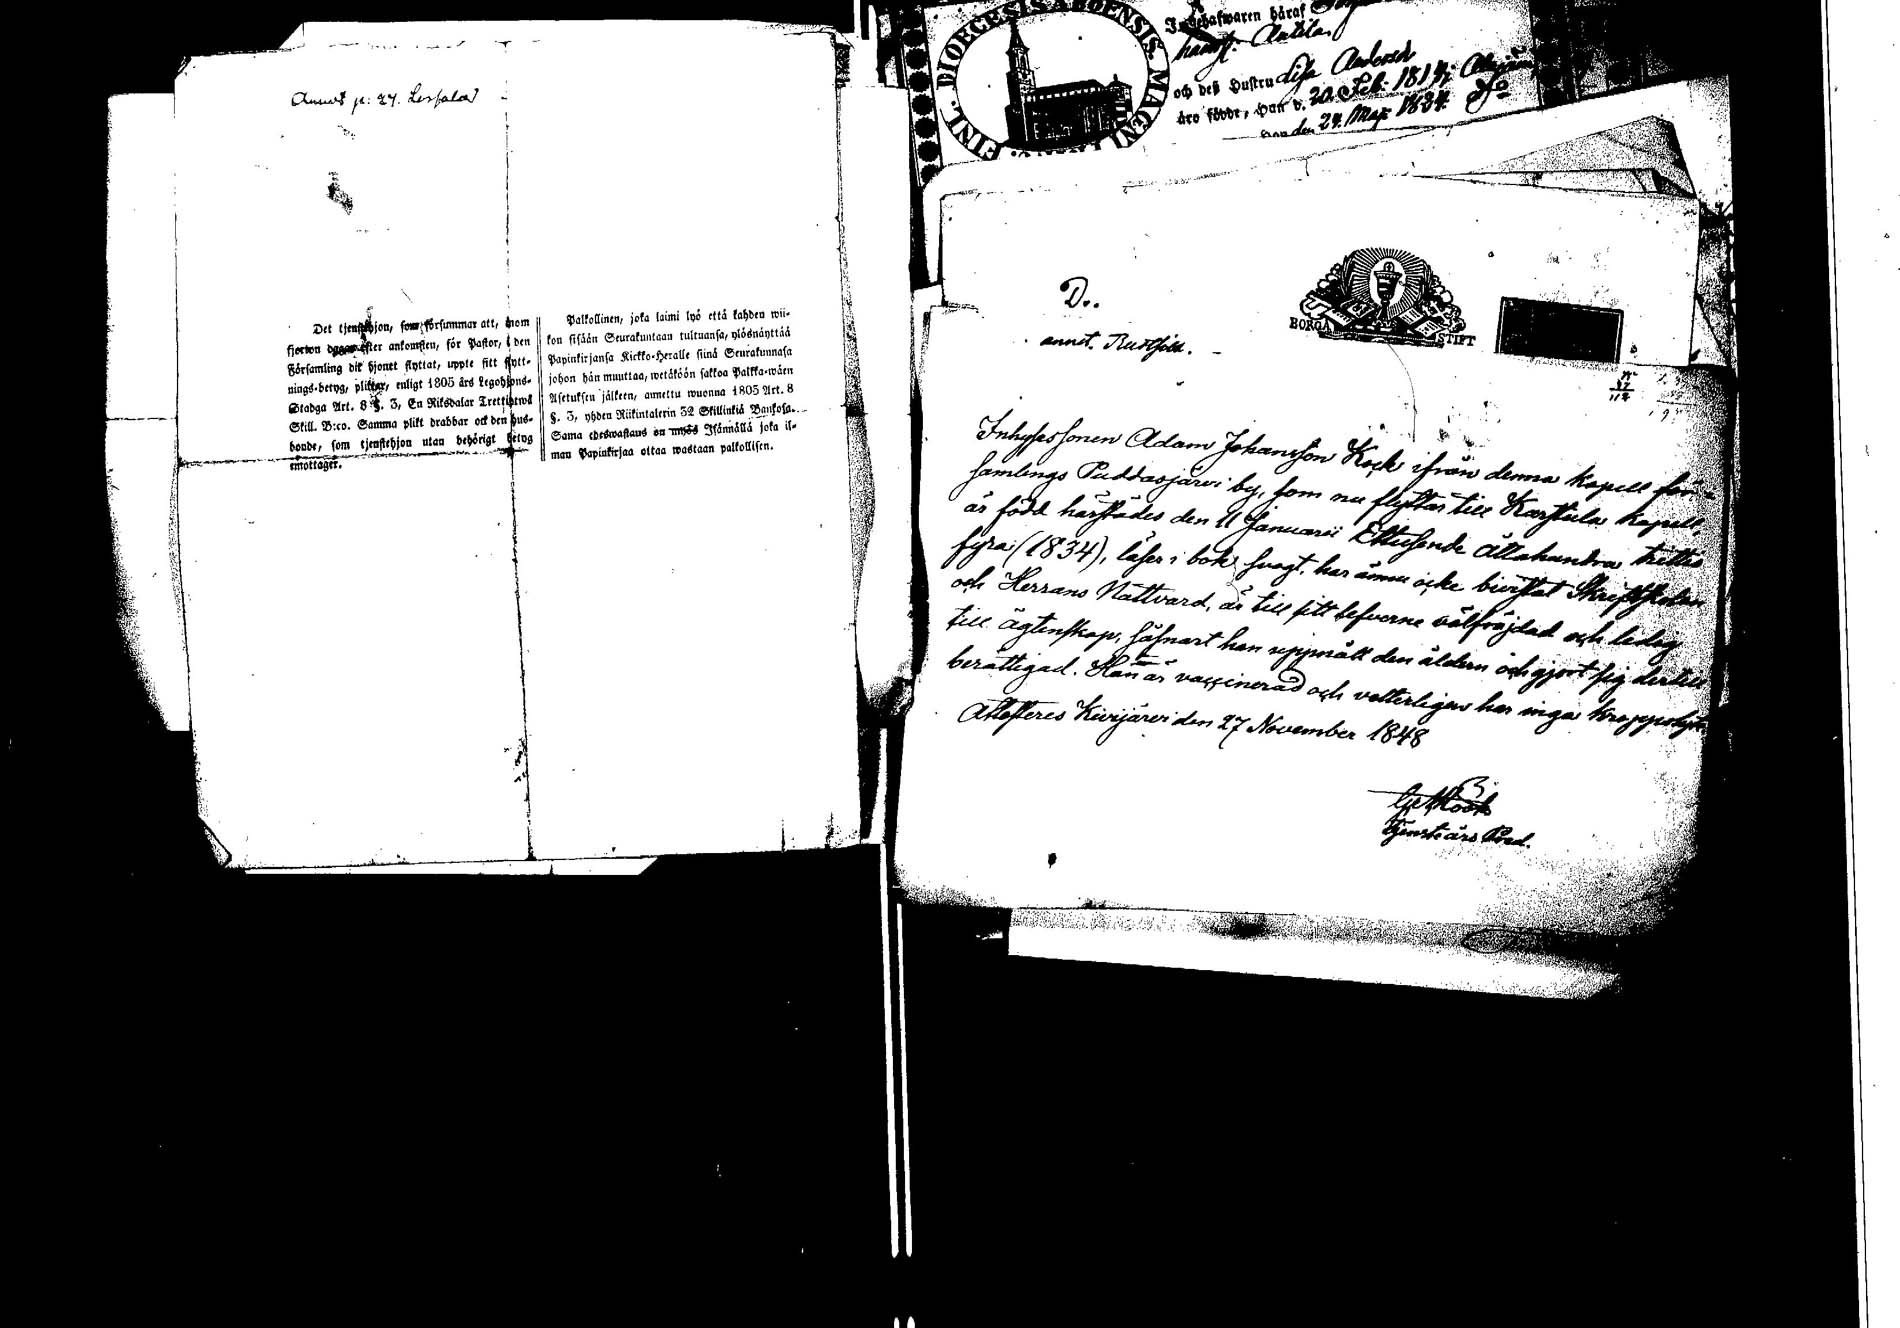 Annot p: 27.
Det tjenstehjon, som försummar att, inom
fjorton dagar efter ankomsten, för Pastor, i den
Församling dit hjonet flyttat, uppte sitt flytt-
nings-betyg, pliktar, enligt 1805 års Legohjons-
Stadga Art. 8 §. 3, En Riksdalar Trettitwå
Skill. B:co. Samma plikt drabbar ock den hus-
bonde, som tjenstehjon utan behörigt betyg
emottager.
Palkollinen, joka laimi lyö että kahden wii-
kon sisään Seurakuntaan tultuansa, ylösnäyttää
Papinkirjansa Kirkko-Heralle siinä Seurakunnasa
johon hän muuttaa, wetäköön sakkoa Palkka-wäen
Asetuksen jälkeen, annettu wuonna 1805 Art. 8
§. 3, yhden Riikintalerin 32 Skillinkiä Bankosa.
Sama edeswastaus on myös Isännällä joka il-
man Papinkirjaa ottaa wastaan palkollisen.
FINL. DIOECESIS ABOENSIS. MAGNI
Innehafwaren häraf
Anttila
och deß Hustru Lisa Andersd
äro födde, Han d. 20 Feb. 181
Hon den 24 Maji 1834
D..
annot.
BORGÅ STIFT
Inhysessonen Adam Johansson Kock ifrån denna Kapell för-
samlings Puddasjärvi by, som nu flyttar till Karstula Kapell,
är född härstädes den 11 Januarii Ettusende Åttahundra trettio
fyra (1834), läser i bok svagt, har ännu icke bivistat Skriftskolan
och Herrans Nattvard, är till sitt lefverne välfräjdad och ledig
till ägtenskap, såsnart han uppnått den åldern och gjort sig dertill
berättigad. Han är vaccinerad och vetterligen har inga kroppslyten
Attesteres Kivijärvi den 27 November 1848
Tjenste års Pred.